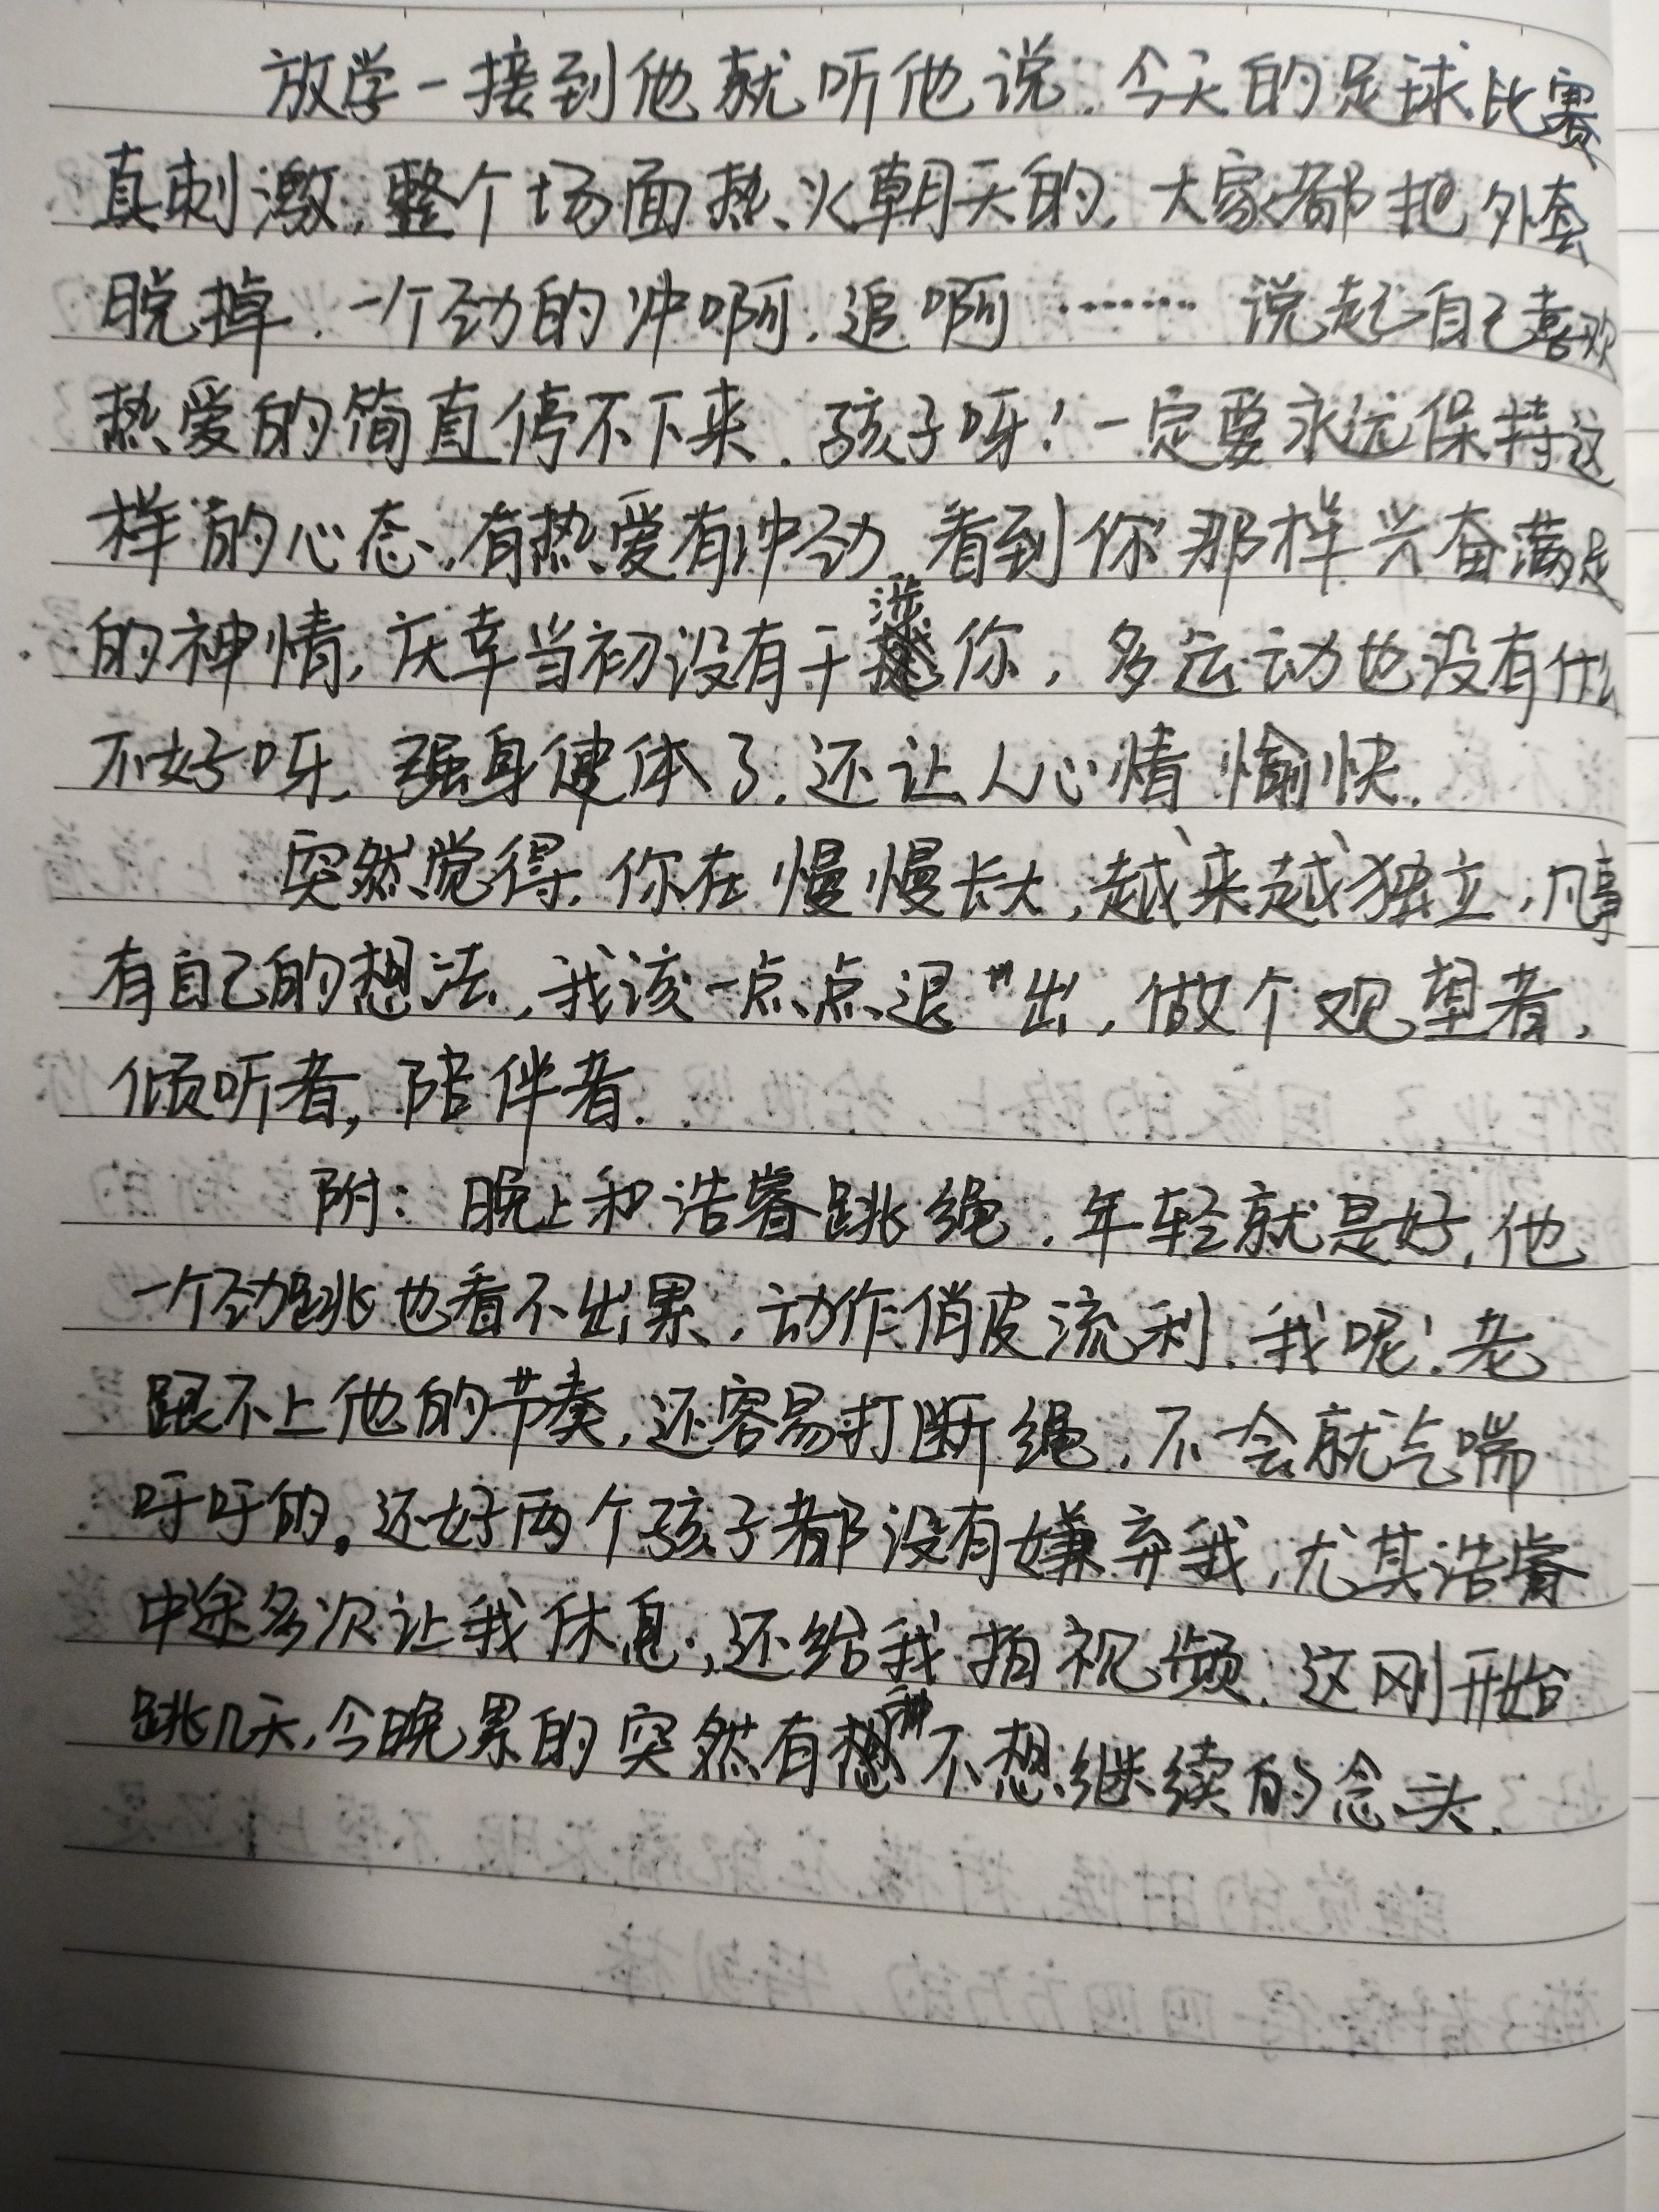 放学一接到他就听他说.今天的足球比赛
真刺激,整个场面热火朝天的,大家都把外套
脱掉.一个劲的冲啊,追啊……说起自己喜欢
热爱的简直停不下来.孩子呀!一定要永远保持这
样的心态,有热爱有冲劲.看到你那样兴奋满足
的神情,庆幸当初没有干涉你,多运动也没有什么
不好呀,强身健体了,还让人心情愉快.
突然觉得,你在慢慢长大,越来越独立,凡事
有自己的想法,我该一点点退出,做个观望者,
倾听者,陪伴者.
附:晚上和浩睿跳绳.年轻就是好,他
一个劲跳也看不出累,动作俏皮流利.我呢!老
跟不上他的节奏,还容易打断绳,不会就气喘
吁吁的。还好两个孩子都没有嫌弃我,尤其浩睿
中途多次让我休息,还给我拍视频.这刚开始
跳几天,今晚累的突然有不想继续的念头.